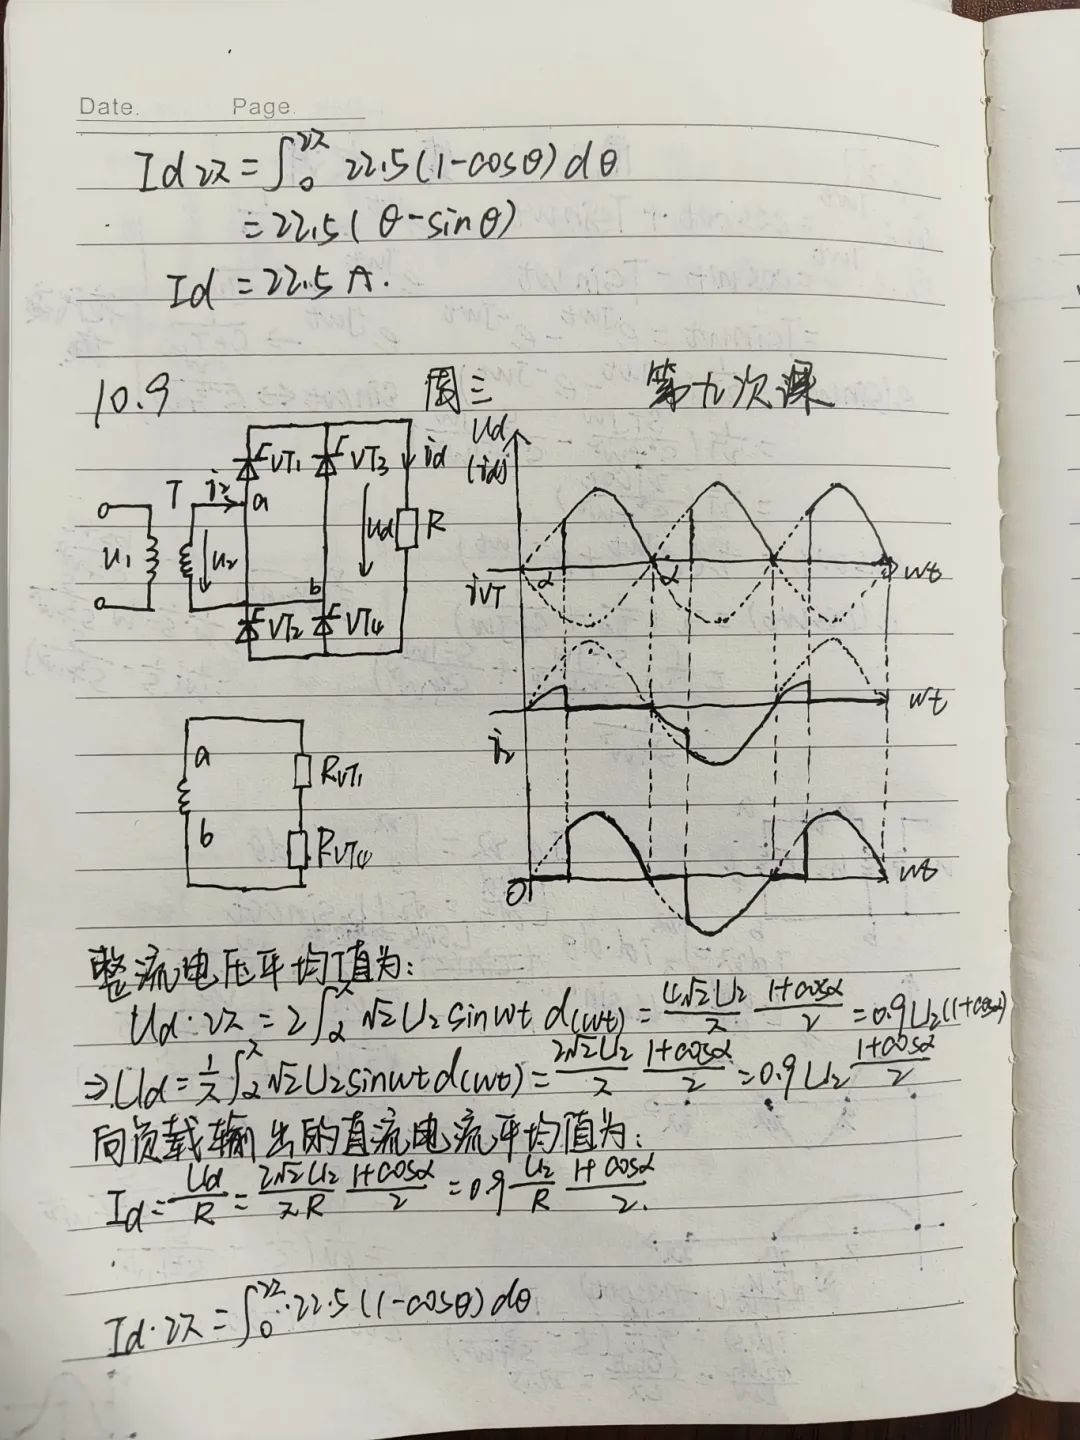 Date. Page.
Id 2π = ∫₀^2π 22.5(1-cosθ)dθ
= 22.5(θ-sinθ)
Id = 22.5 A.
10.9 周三 第九次课
Ud
(id)
VT1 VT3 id
T i2 a
u1 u2 ud R
b
VT2 VT4
α α wt
iVT
wt
i2
a
RVT1
b
RVT4
O wt
整流电压平均值为:
Ud·2π = 2∫α^π √2U2 sinwt d(wt) = 4√2U2/π 1+cosα/2 = 0.9U2(1+cosα)
⇒Ud = 1/π ∫α^π √2U2sinwtd(wt) = 2√2U2/π 1+cosα/2 = 0.9U2 1+cosα/2
向负载输出的直流电流平均值为:
Id = Ud/R = 2√2U2/πR 1+cosα/2 = 0.9 U2/R 1+cosα/2.
Id·2π = ∫₀^2π 22.5(1-cosθ)dθ